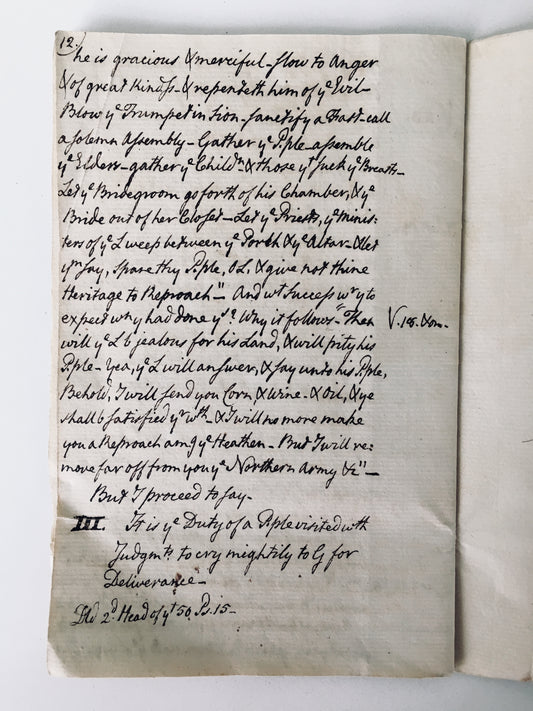 12.
he is gracious & merciful - slow to Anger
& of great Kindss - & repenteth him of ye Evil -
Blow ye Trumpet in Sion - sanctify a Fast - call
a solemn Assembly - Gather ye P.ple - assemble
ye Elders - gather ye Childn & those yt suck ye Breasts -
Let ye Bridegroom go forth of his Chamber, & ye
Bride out of her Closet - Let ye Priests, ye Minis:
ters of ye L weep between ye Porch & ye Altar - & let
ym say, Spare thy P.ple, O L, & give not thine
Heritage to Reproach" - And wt Success wr yy to
expect wn yy had done ys? Why it follows - "Then V. 18. &on.
will ye L b jealous for his Land, & will pity his
P.ple - Yea, ye L will answer, & say unto his P.ple,
Behold, I will send you Corn & Wine - & Oil, & ye
shall b satisfied yrwth - & I will no more make
you a Reproach amg ye Heathen - But I will re:
move far off from you ye Northern Army &c" -
But I proceed to say -
III. It is ye Duty of a P.ple visited wth
Judgmts to cry mightily to G for
Deliverance -
2d Head of yt 50 Ps. 15 -